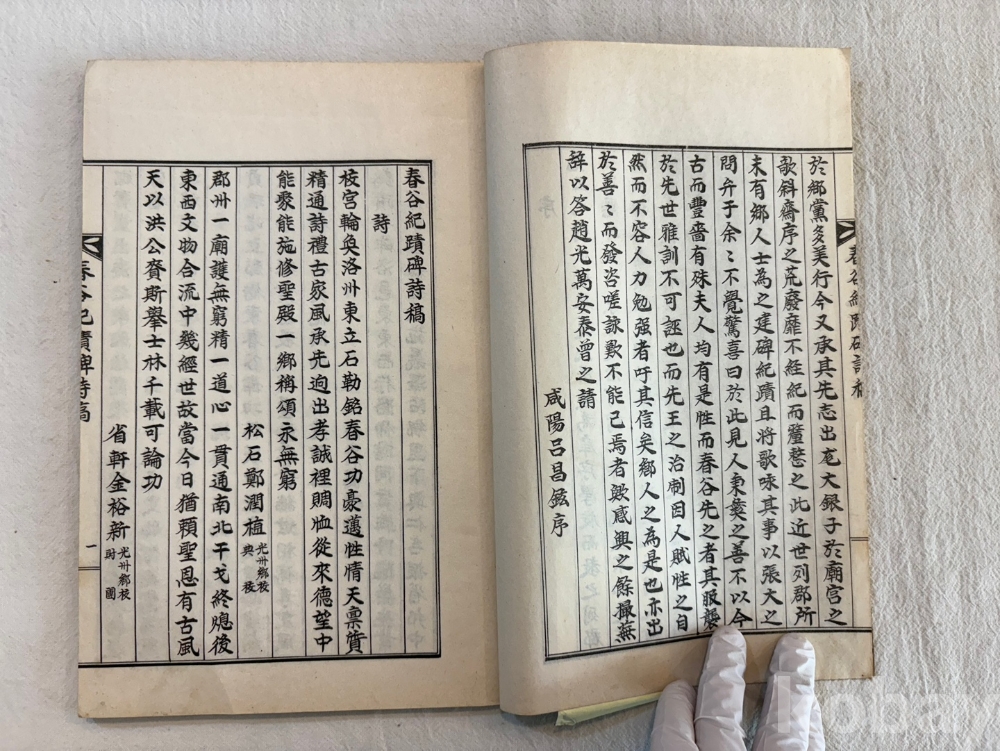 於鄕黨多美行今又承其先志出宏大銀子於廟宮之
欹斜齋序之荒廢靡不經紀而釐整之此近世列郡所
未有鄕人士為之建碑紀蹟且將歌咏其事以張大之
問弁于余〻不覺驚喜曰於此見人秉彛之善不以今
古而豐嗇有殊夫人均有是性而春谷先之者其服襲
於先世雅訓不可誣也而先王之治制因人賦性之自
然而不容人力勉强者吁其信矣鄕人之為是也亦出
於善〻而發咨嗟詠歎不能已焉者歟感興之餘撮蕪
辭以答趙光萬安泰曾之請
咸陽呂昌鉉序
春谷紀蹟碑詩稿
春谷紀蹟碑詩稿
詩
校宮輪奐洛州東立石勒銘春谷功豪邁性情天禀質
精通詩禮古家風承先逈出孝誠裡賙恤從來德望中
能聚能施修聖殿一鄕稱頌永無窮
松石鄭潤植 光州鄕校典校
郡州一廟護無窮精一道心一貫通南北干戈終熄後
東西文物合流中幾經世故當今日猶賴聖恩有古風
天以洪公賚斯擧士林千載可論功
省軒金裕新 光州鄕校尉圖
春谷紀蹟碑詩稿
一
kobay